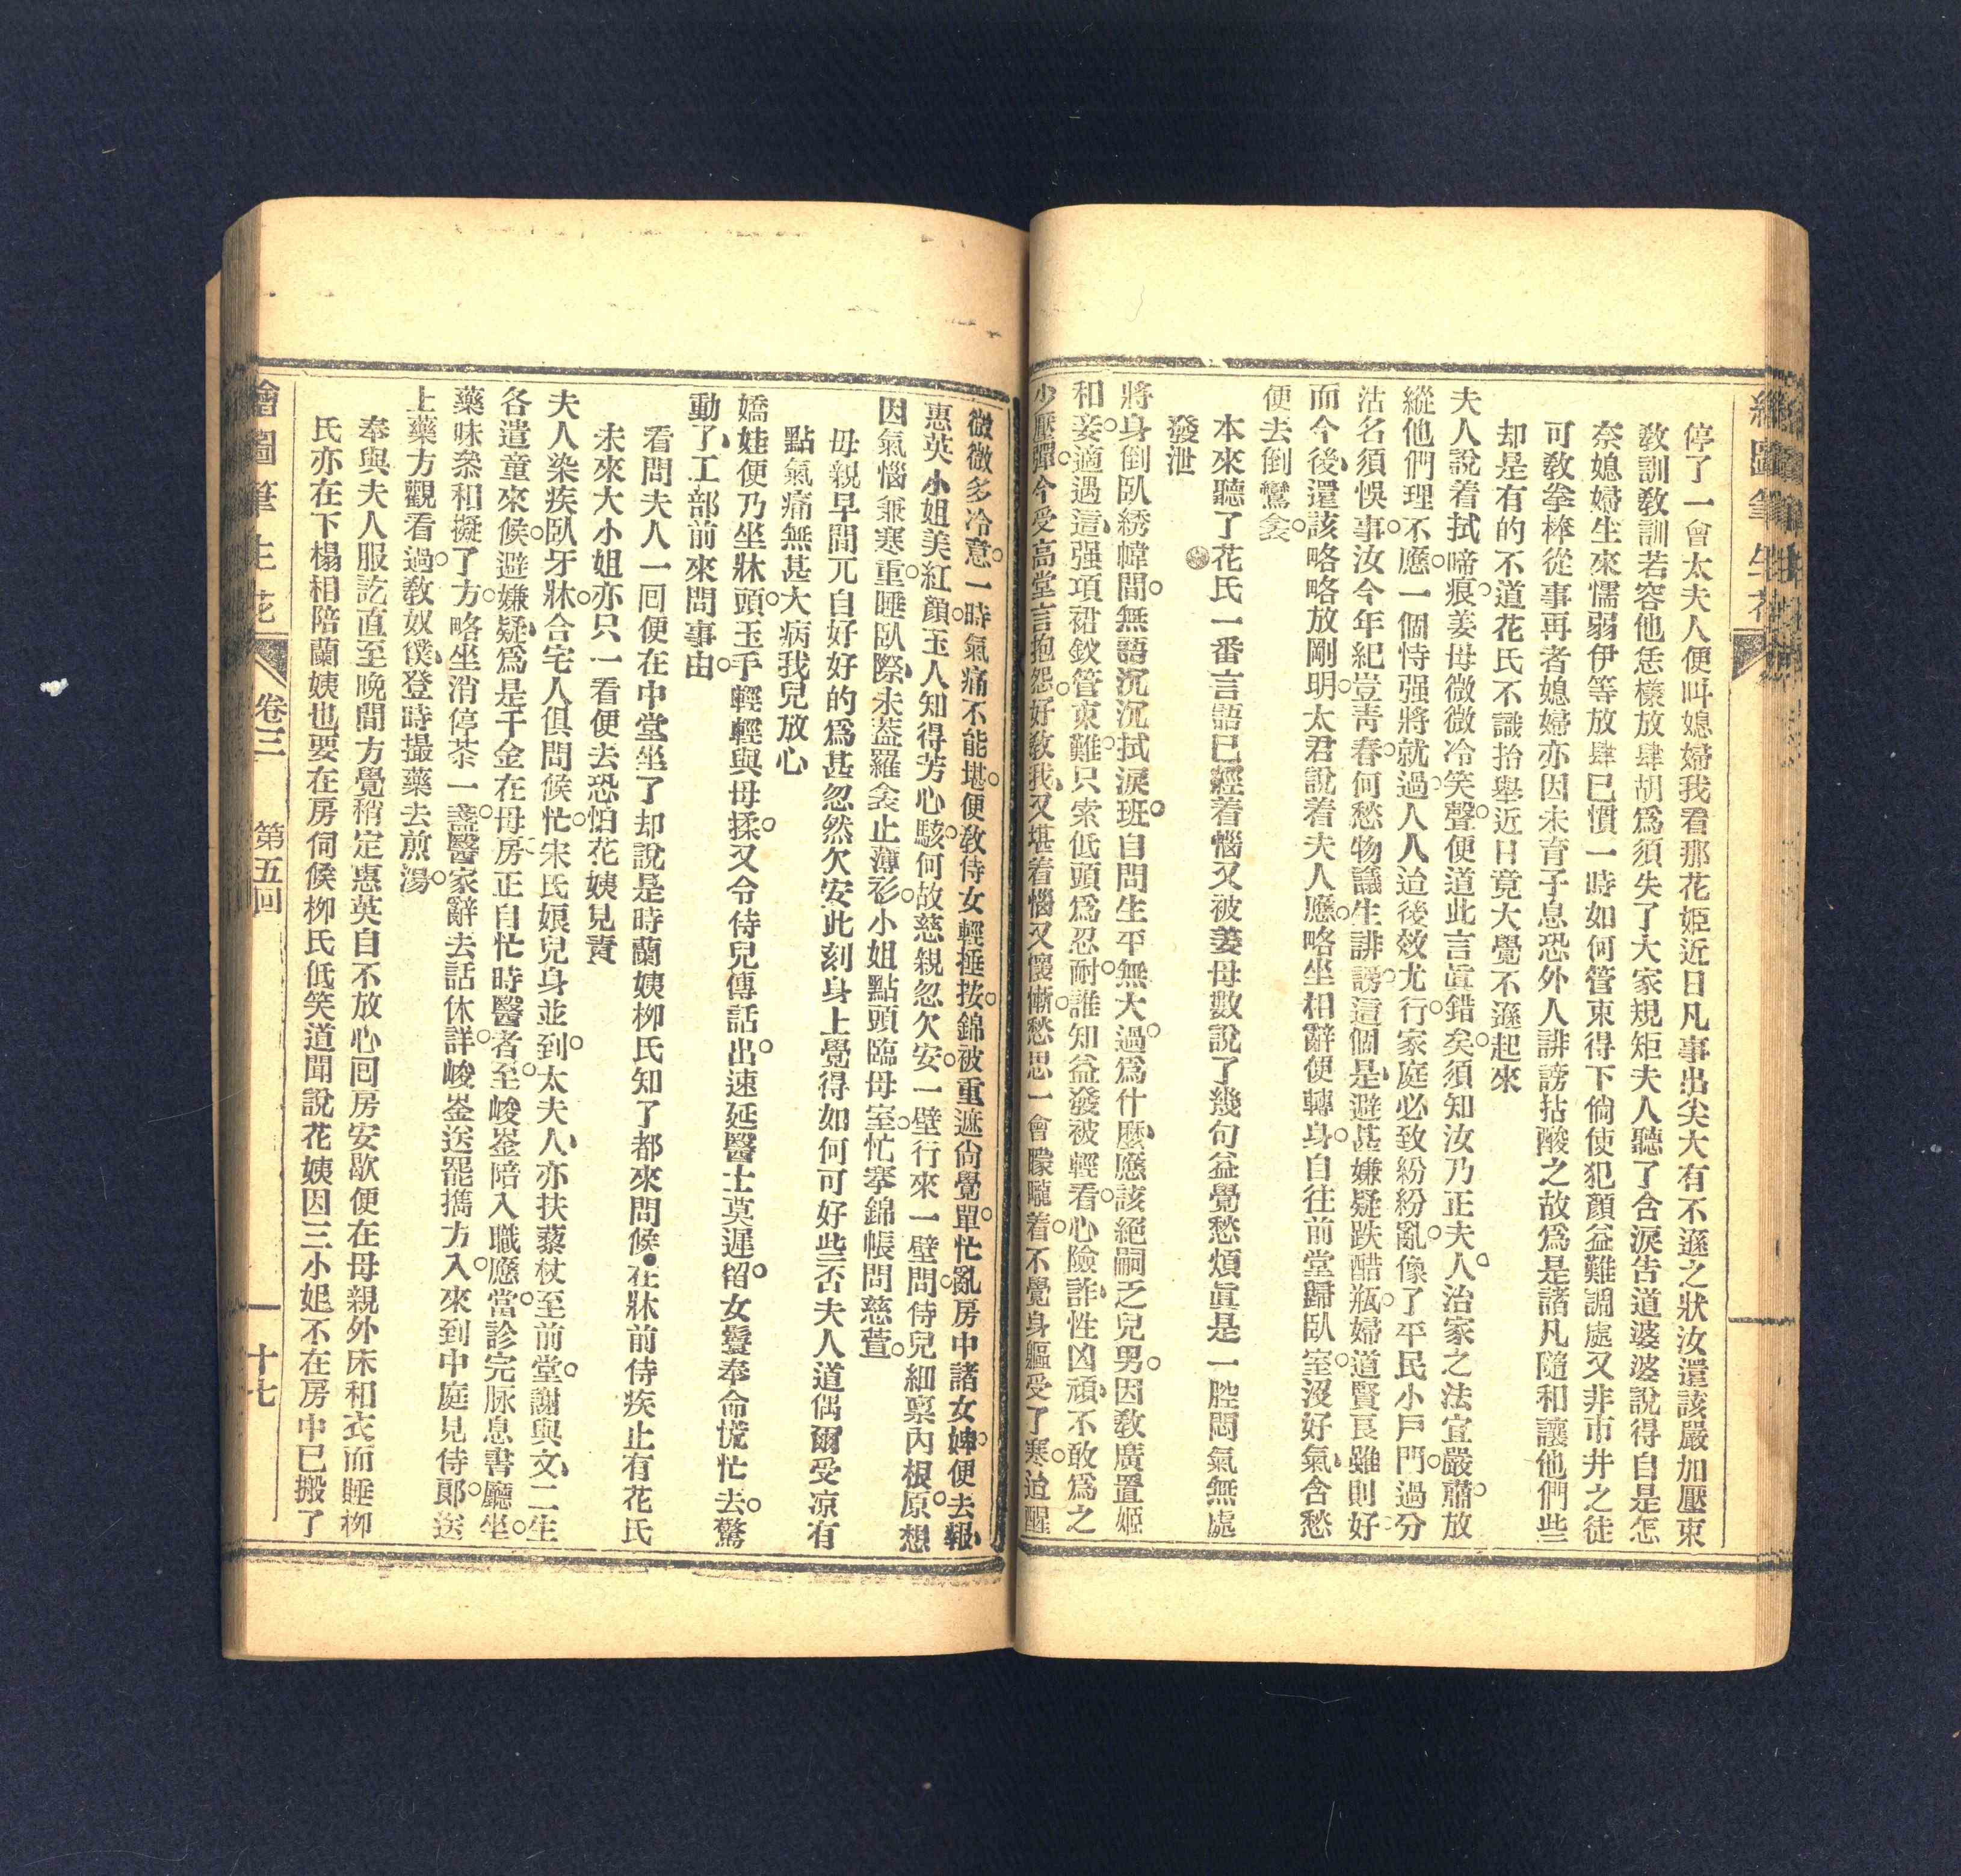 繪圖筆生花
停了一會太夫人便叫媳婦我看那花姬近日凡事出尖大有不遜之狀汝還該嚴加壓束
教訓教訓若容他恁樣放肆胡爲須失了大家規矩夫人聽了含淚告道婆婆說得自是怎
奈媳婦生來懦弱伊等放肆已慣一時如何管束得下倘使犯顏益難調處又非市井之徒
可教拳棒從事再者媳婦亦因未育子息恐外人誹謗拈酸之故爲是諸凡隨和讓他們些
却是有的不道花氏不識抬舉近日竟大覺不遜起來
夫人說着拭啼痕。姜母微微冷笑聲。便道此言眞錯矣。須知汝乃正夫人。治家之法宜嚴肅。放
縱他們理不應。一個恃强將就過。人人迨後效尤行。家庭必致紛紛亂。像了平民小戶門。過分
沽名須悞事。汝今年紀豈靑春。何愁物議生誹謗。這個是、避甚嫌疑跌醋瓶。婦道賢良雖則好
而今後、還該略略放剛明。太君說着夫人應。略坐相辭便轉身。自往前堂歸臥室。沒好氣、含愁
便去倒鸞衾。
本來聽了花氏一番言語已經着惱又被姜母數說了幾句益覺愁煩眞是一腔悶氣無處
發泄
將身倒臥綉幃間。無語沉沉拭淚班。自問生平無大過。爲什麼、應該絕嗣乏兒男。因教廣置姬
和妾。適遇這、强項裙釵管束難。只索低頭爲忍耐。誰知益發被輕看。心險詐、性凶頑、不敢爲之
少壓彈。今受高堂言抱怨。好教我、又堪着惱又懷慚。愁思一會朦朧着。不覺身軀受了寒。迨醒
微微多冷意。一時氣痛不能堪。便教侍女輕捶按。錦被重遮尙覺單。忙亂房中諸女婢。便去報、
惠英小姐美紅顏。玉人知得芳心駭。何故慈親忽欠安。一壁行來一壁問。侍兒細禀內根原。想
因氣惱兼寒重。睡臥際、未蓋羅衾止薄衫。小姐點頭臨母室。忙搴錦帳問慈萱。
母親早間兀自好好的爲甚忽然欠安此刻身上覺得如何可好些否夫人道偶爾受凉有
點氣痛無甚大病我兒放心
嬌娃便乃坐牀頭。玉手輕輕與母揉。又令侍兒傳話出。速延醫士莫遲留。女鬟奉命慌忙去。驚
動了、工部前來問事由。
看問夫人一回便在中堂坐了却說是時蘭姨柳氏知了都來問候●在牀前侍疾止有花氏
未來大小姐亦只一看便去恐怕花姨見責
夫人染疾臥牙牀。合宅人俱問候忙。宋氏娘兒身並到。太夫人、亦扶藜杖至前堂。謝與文、二生
各遣童來候。避嫌疑、爲是千金在母房。正自忙時醫者至。峻峑陪入職應當。診完脉息書廳坐。
藥味叅和擬了方。略坐消停茶一盞。醫家辭去話休詳。峻峑送罷擕方入。來到中庭見侍郞。送
上藥方觀看過。教奴僕、登時撮藥去煎湯。
奉與夫人服訖直至晚間方覺稍定惠英自不放心回房安歇便在母親外床和衣而睡柳
氏亦在下榻相陪蘭姨也要在房伺候柳氏低笑道聞說花姨因三小姐不在房中已搬了
繪圖筆生花 卷三 第五回 十七